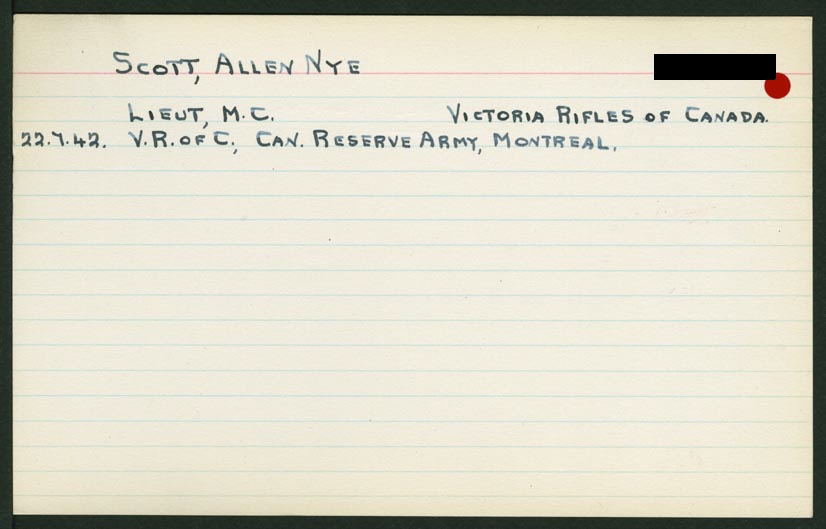 SCOTT, ALLEN NYE
LIEUT, M.C. VICTORIA RIFLES OF CANADA.
22.7.42. V.R. OF C., CAN. RESERVE ARMY, MONTREAL.